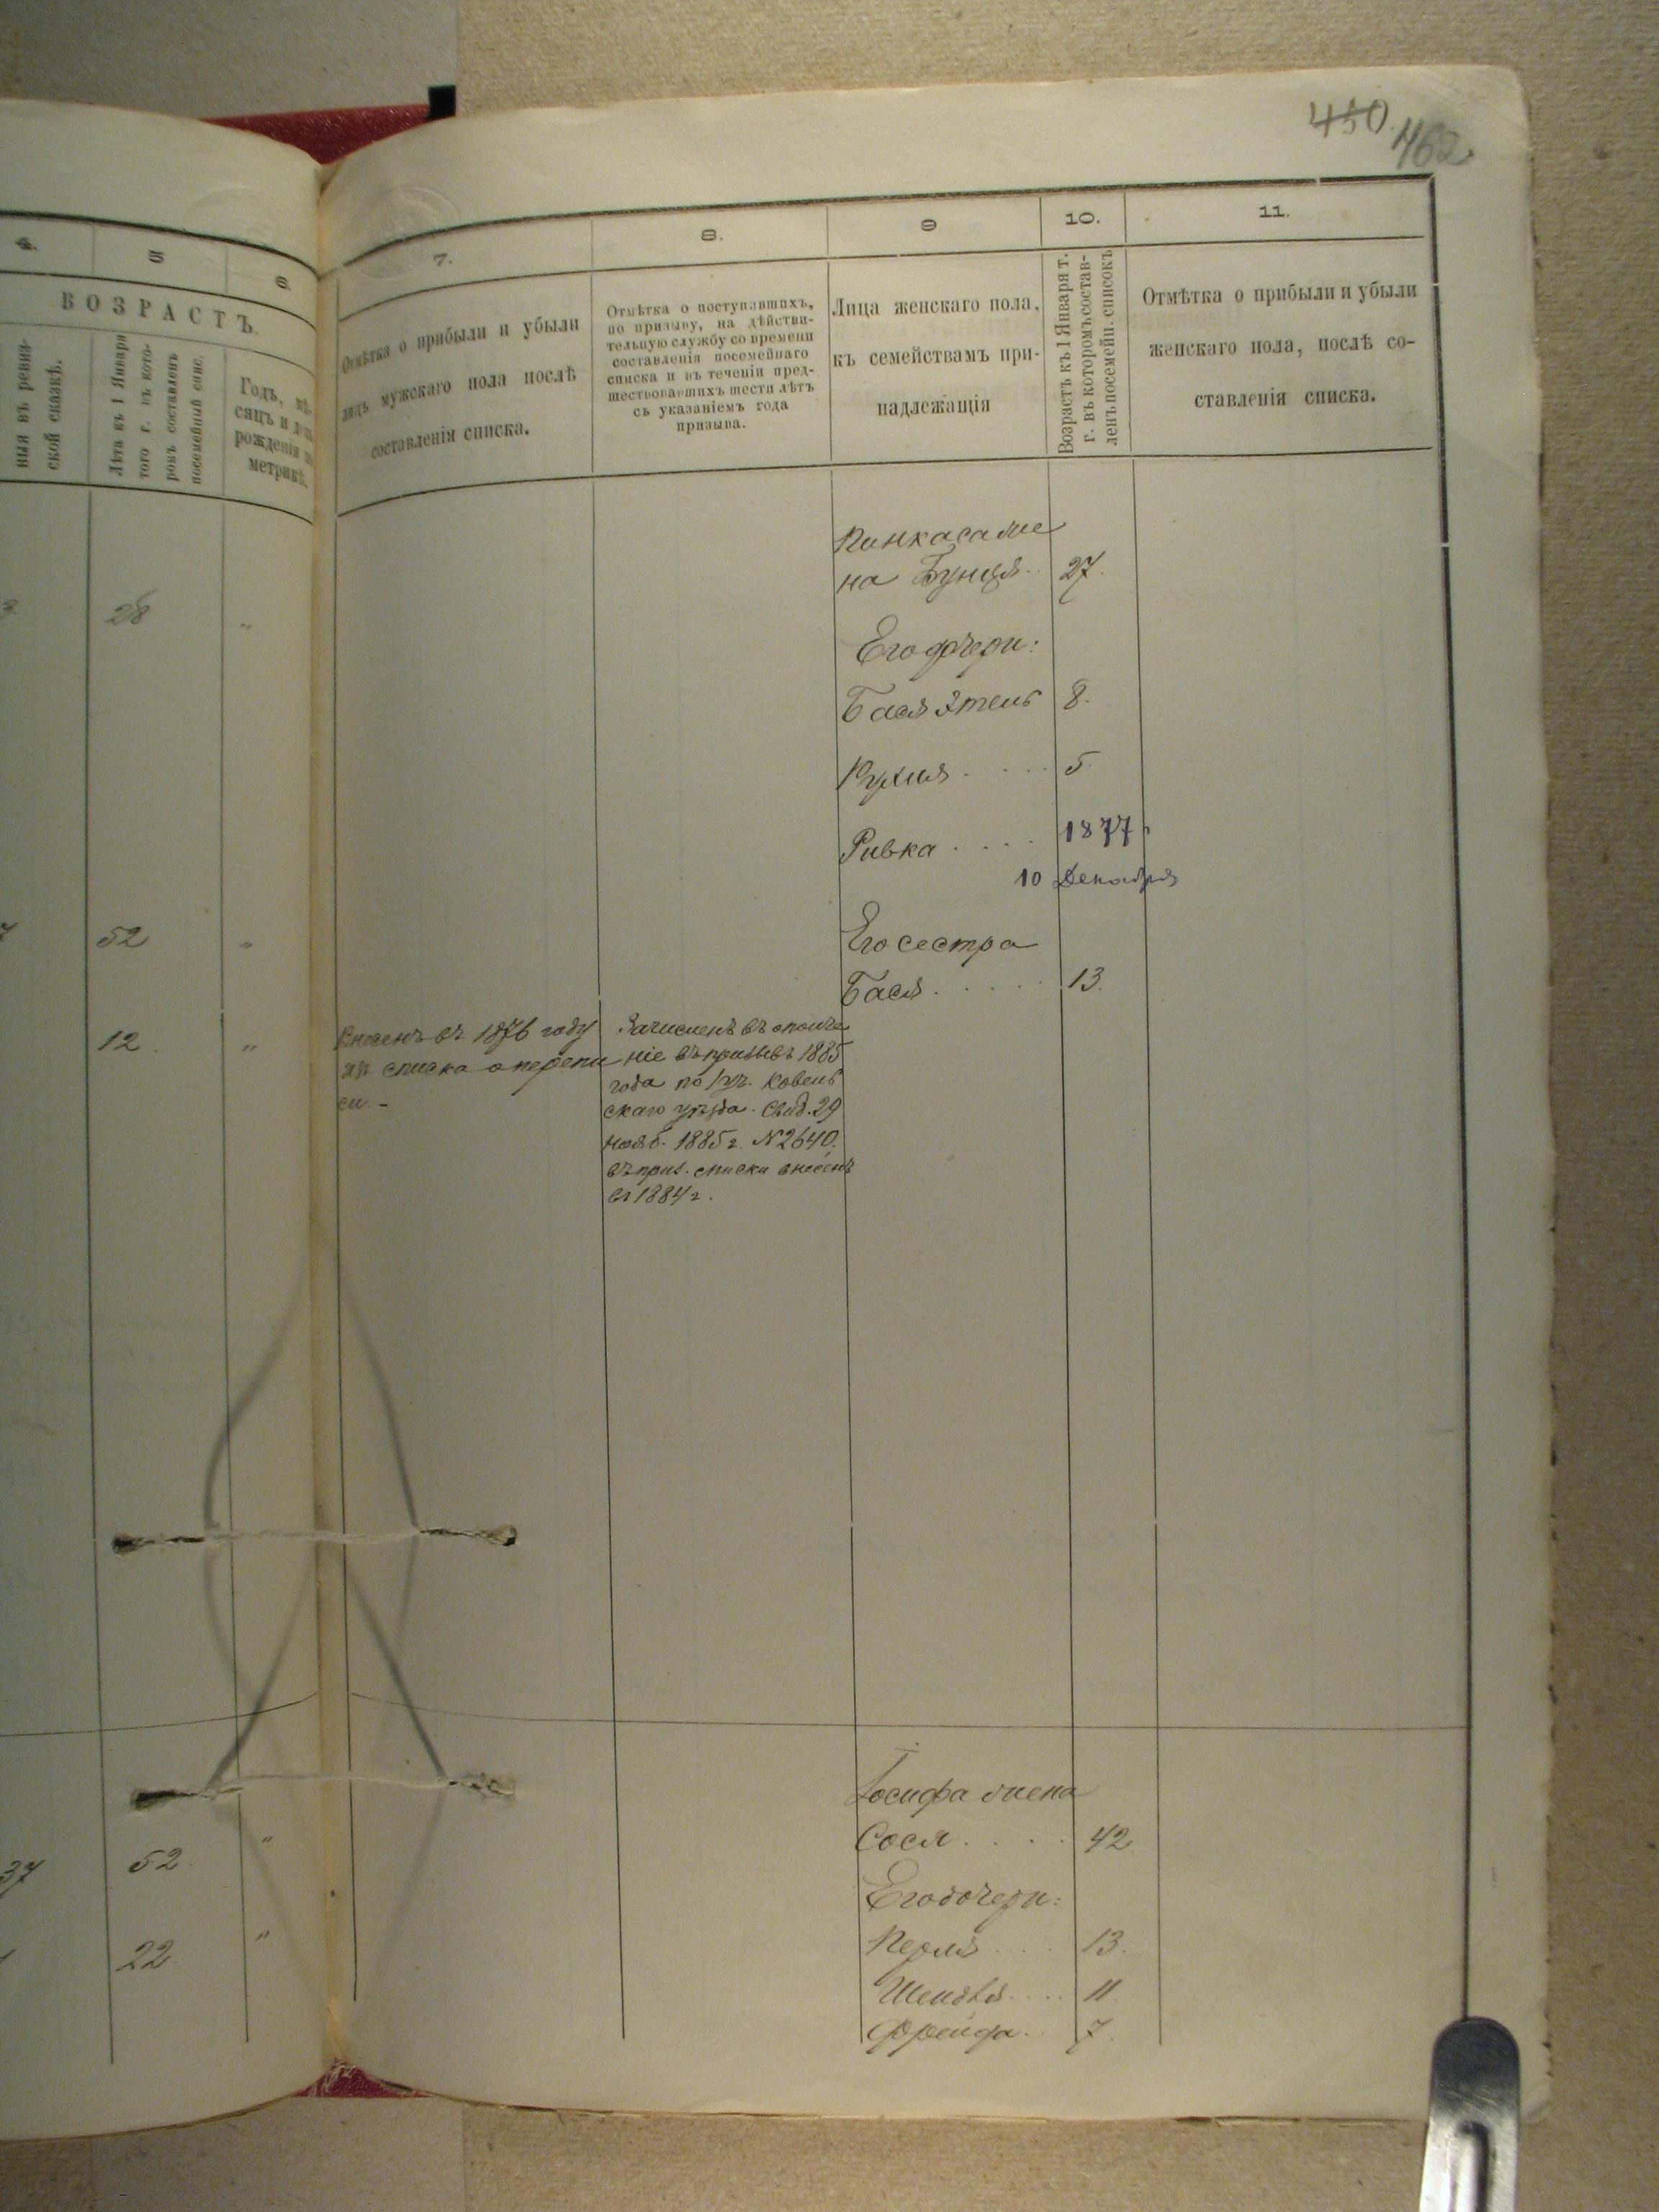 450. 462.
4. 5 6. 7. 8. 9 10. 11.
ВОЗРАСТЪ.
ныя въ ревиз-
ской сказкѣ.
Лѣта къ 1 Января
того г. въ кото-
ромъ составленъ
посемейный спис.
Годъ, мѣ-
сяцъ и день
рожденія по
метрикѣ.
Отмѣтка о прибыли и убыли
лицъ мужскаго пола послѣ
составленія списка.
Отмѣтка о поступившихъ,
по призыву, на дѣйстви-
тельную службу со времени
составленія посемейнаго
списка и въ теченіи пред-
шествовавшихъ шести лѣтъ
съ указаніемъ года
призыва.
Лица женскаго пола,
къ семействамъ при-
надлежащія
Возрастъ къ 1 Января т.
г. въ которомъ состав-
ленъ посемейн. списокъ
Отмѣтка о прибыли и убыли
женскаго пола, послѣ со-
ставленія списка.
Пинкаса же
на Бунця.. 27.
28 "
Его дочери:
Бася Этель 8.
Рухля .... 5.
Ривка .... 1877
10 Декабря
52 "
Его сестра
Бася ..... 13.
12. "
Внесенъ въ 1876 году
изъ списка о перепи
си. -
Зачисленъ въ ополче
ніе въ призывъ 1885
года по уч. Ковен
скаго уѣзда. Свид. 29
нояб. 1885 г. №2640.
въ приз. списки внесенъ
въ 1884 г.
Іосифа жена
Сося .... 42
37 52 "
Его дочери:
Перля ... 13.
22. "
Шейна .... 11
Фрейда.. 7.